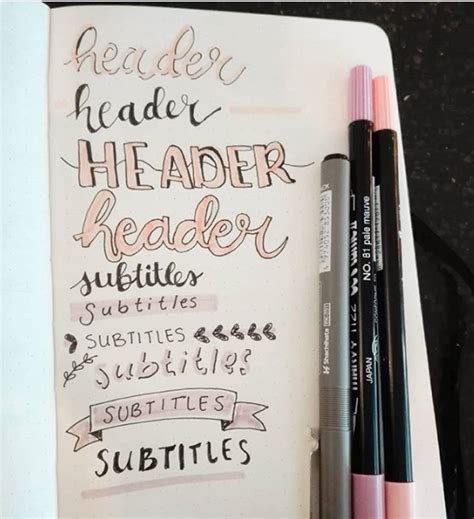 header
header
HEADER
header
subtitles
Subtitles
SUBTITLES
subtitles
SUBTITLES
SUBTITLES
Shachihata
NO. 81 pale mauve
JAPAN